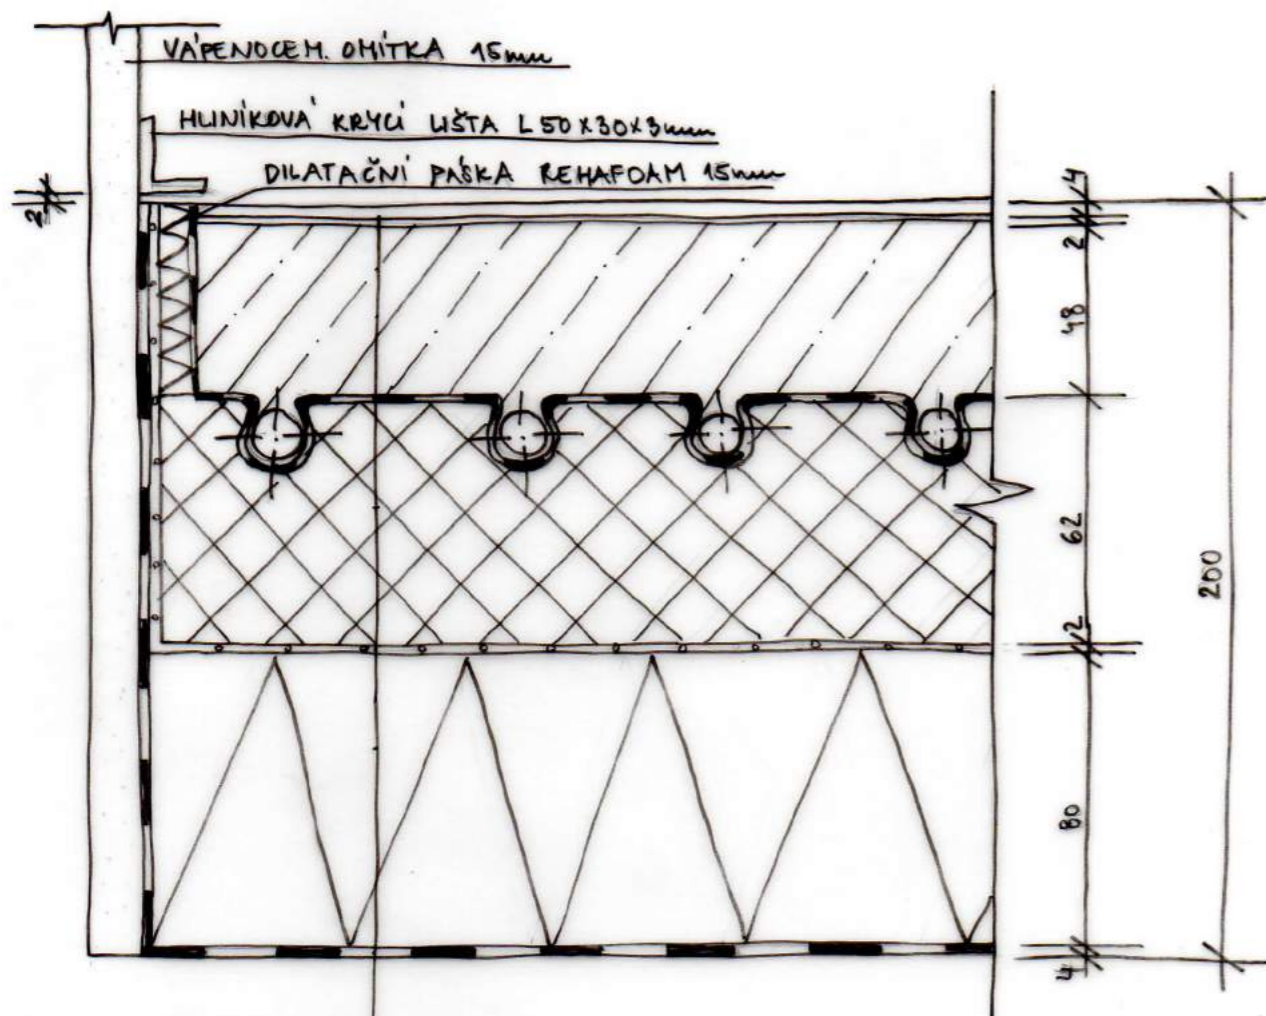 VÁPENOCEM. OMÍTKA 15mm
HLINÍKOVÁ KRYCÍ LIŠTA L 50x30x3mm
DILATAČNÍ PÁSKA REHAFOAM 15mm
2
4
2
48
62
2
80
4
200